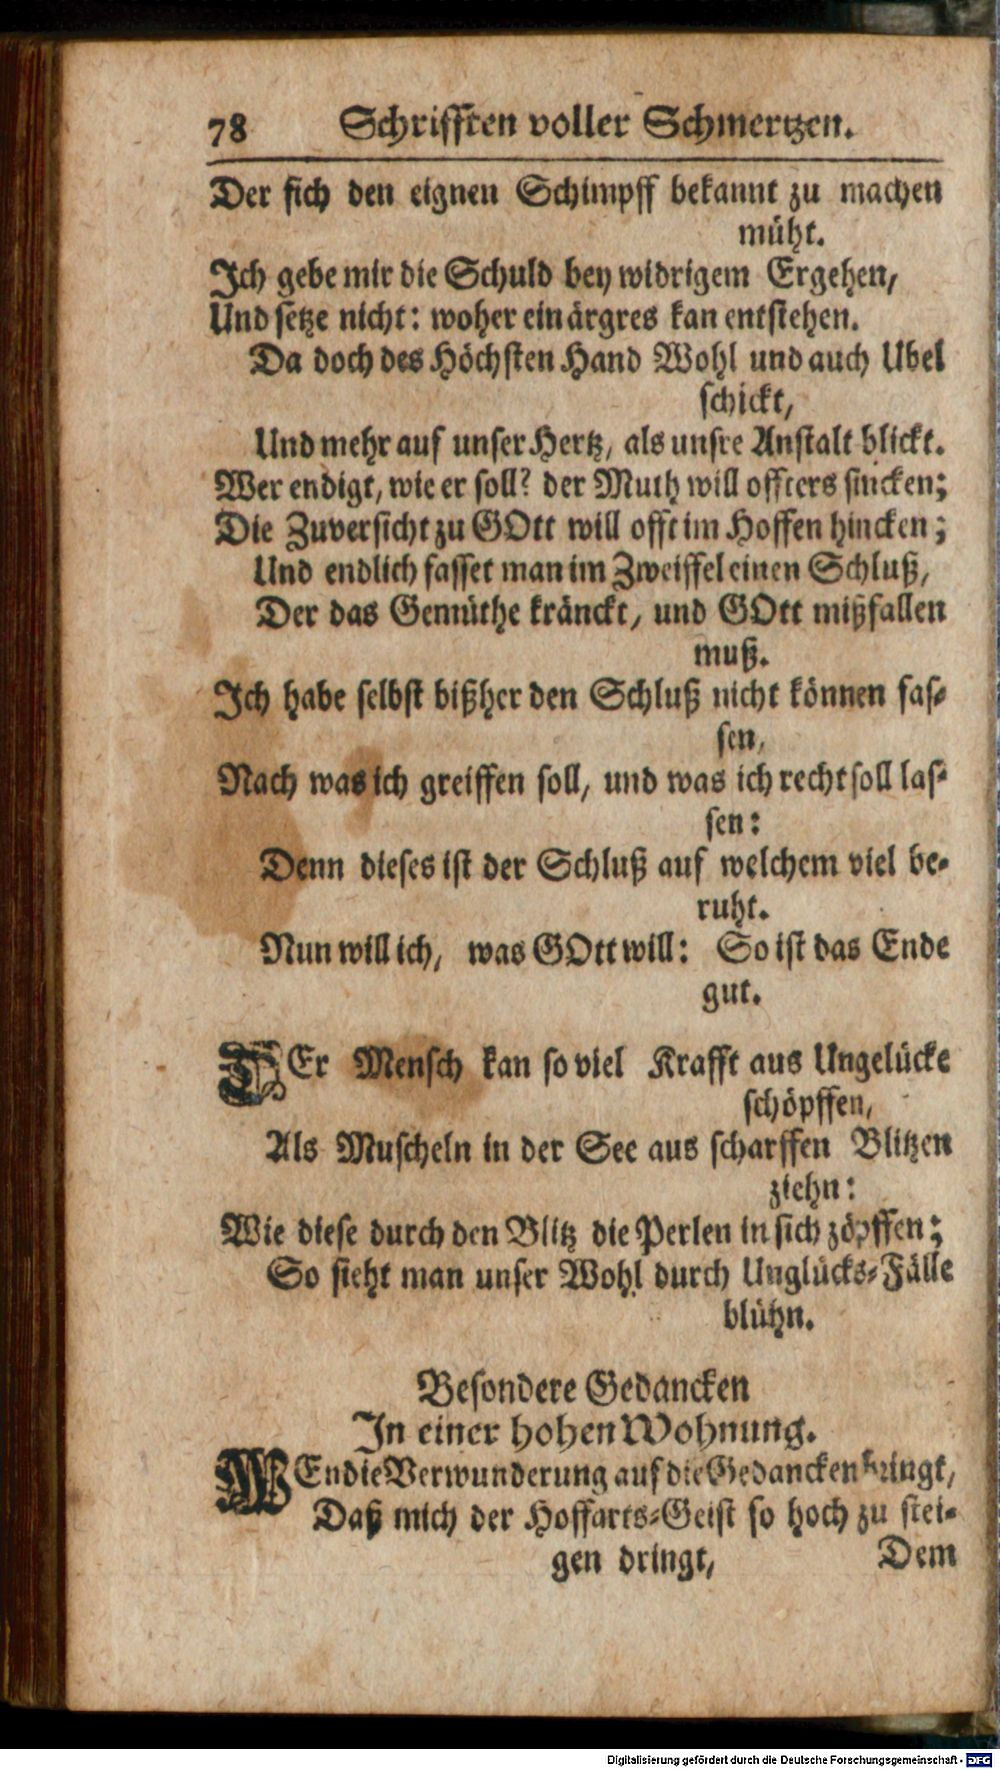 78 Schrifften voller Schmertzen.
Der sich den eignen Schimpff bekannt zu machen
müht.
Ich gebe mir die Schuld bey widrigem Ergehen,
Und setze nicht: woher ein ärgres kan entstehen.
Da doch des Höchsten Hand Wohl und auch Ubel
schickt,
Und mehr auf unser Hertz, als unsre Anstalt blickt.
Wer endigt, wie er soll? der Muth will offters sincken;
Die Zuversicht zu GOtt will offt im Hoffen hincken;
Und endlich fasset man im Zweiffel einen Schluß,
Der das Gemüthe kränckt, und GOtt mißfallen
muß.
Ich habe selbst bißher den Schluß nicht können fas-
sen,
Nach was ich greiffen soll, und was ich recht soll las-
sen:
Denn dieses ist der Schluß auf welchem viel be-
ruht.
Nun will ich, was GOtt will: So ist das Ende
gut.
DEr Mensch kan so viel Krafft aus Ungelücke
schöpffen,
Als Muscheln in der See aus scharffen Blitzen
ziehn:
Wie diese durch den Blitz die Perlen in sich zöpffen;
So sieht man unser Wohl durch Unglücks-Fälle
blühn.
Besondere Gedancken
In einer hohen Wohnung.
WEn die Verwunderung auf die Gedancken bringt,
Daß mich der Hoffarts-Geist so hoch zu stei-
gen dringt, Dem
Digitalisierung gefördert durch die Deutsche Forschungsgemeinschaft - DFG